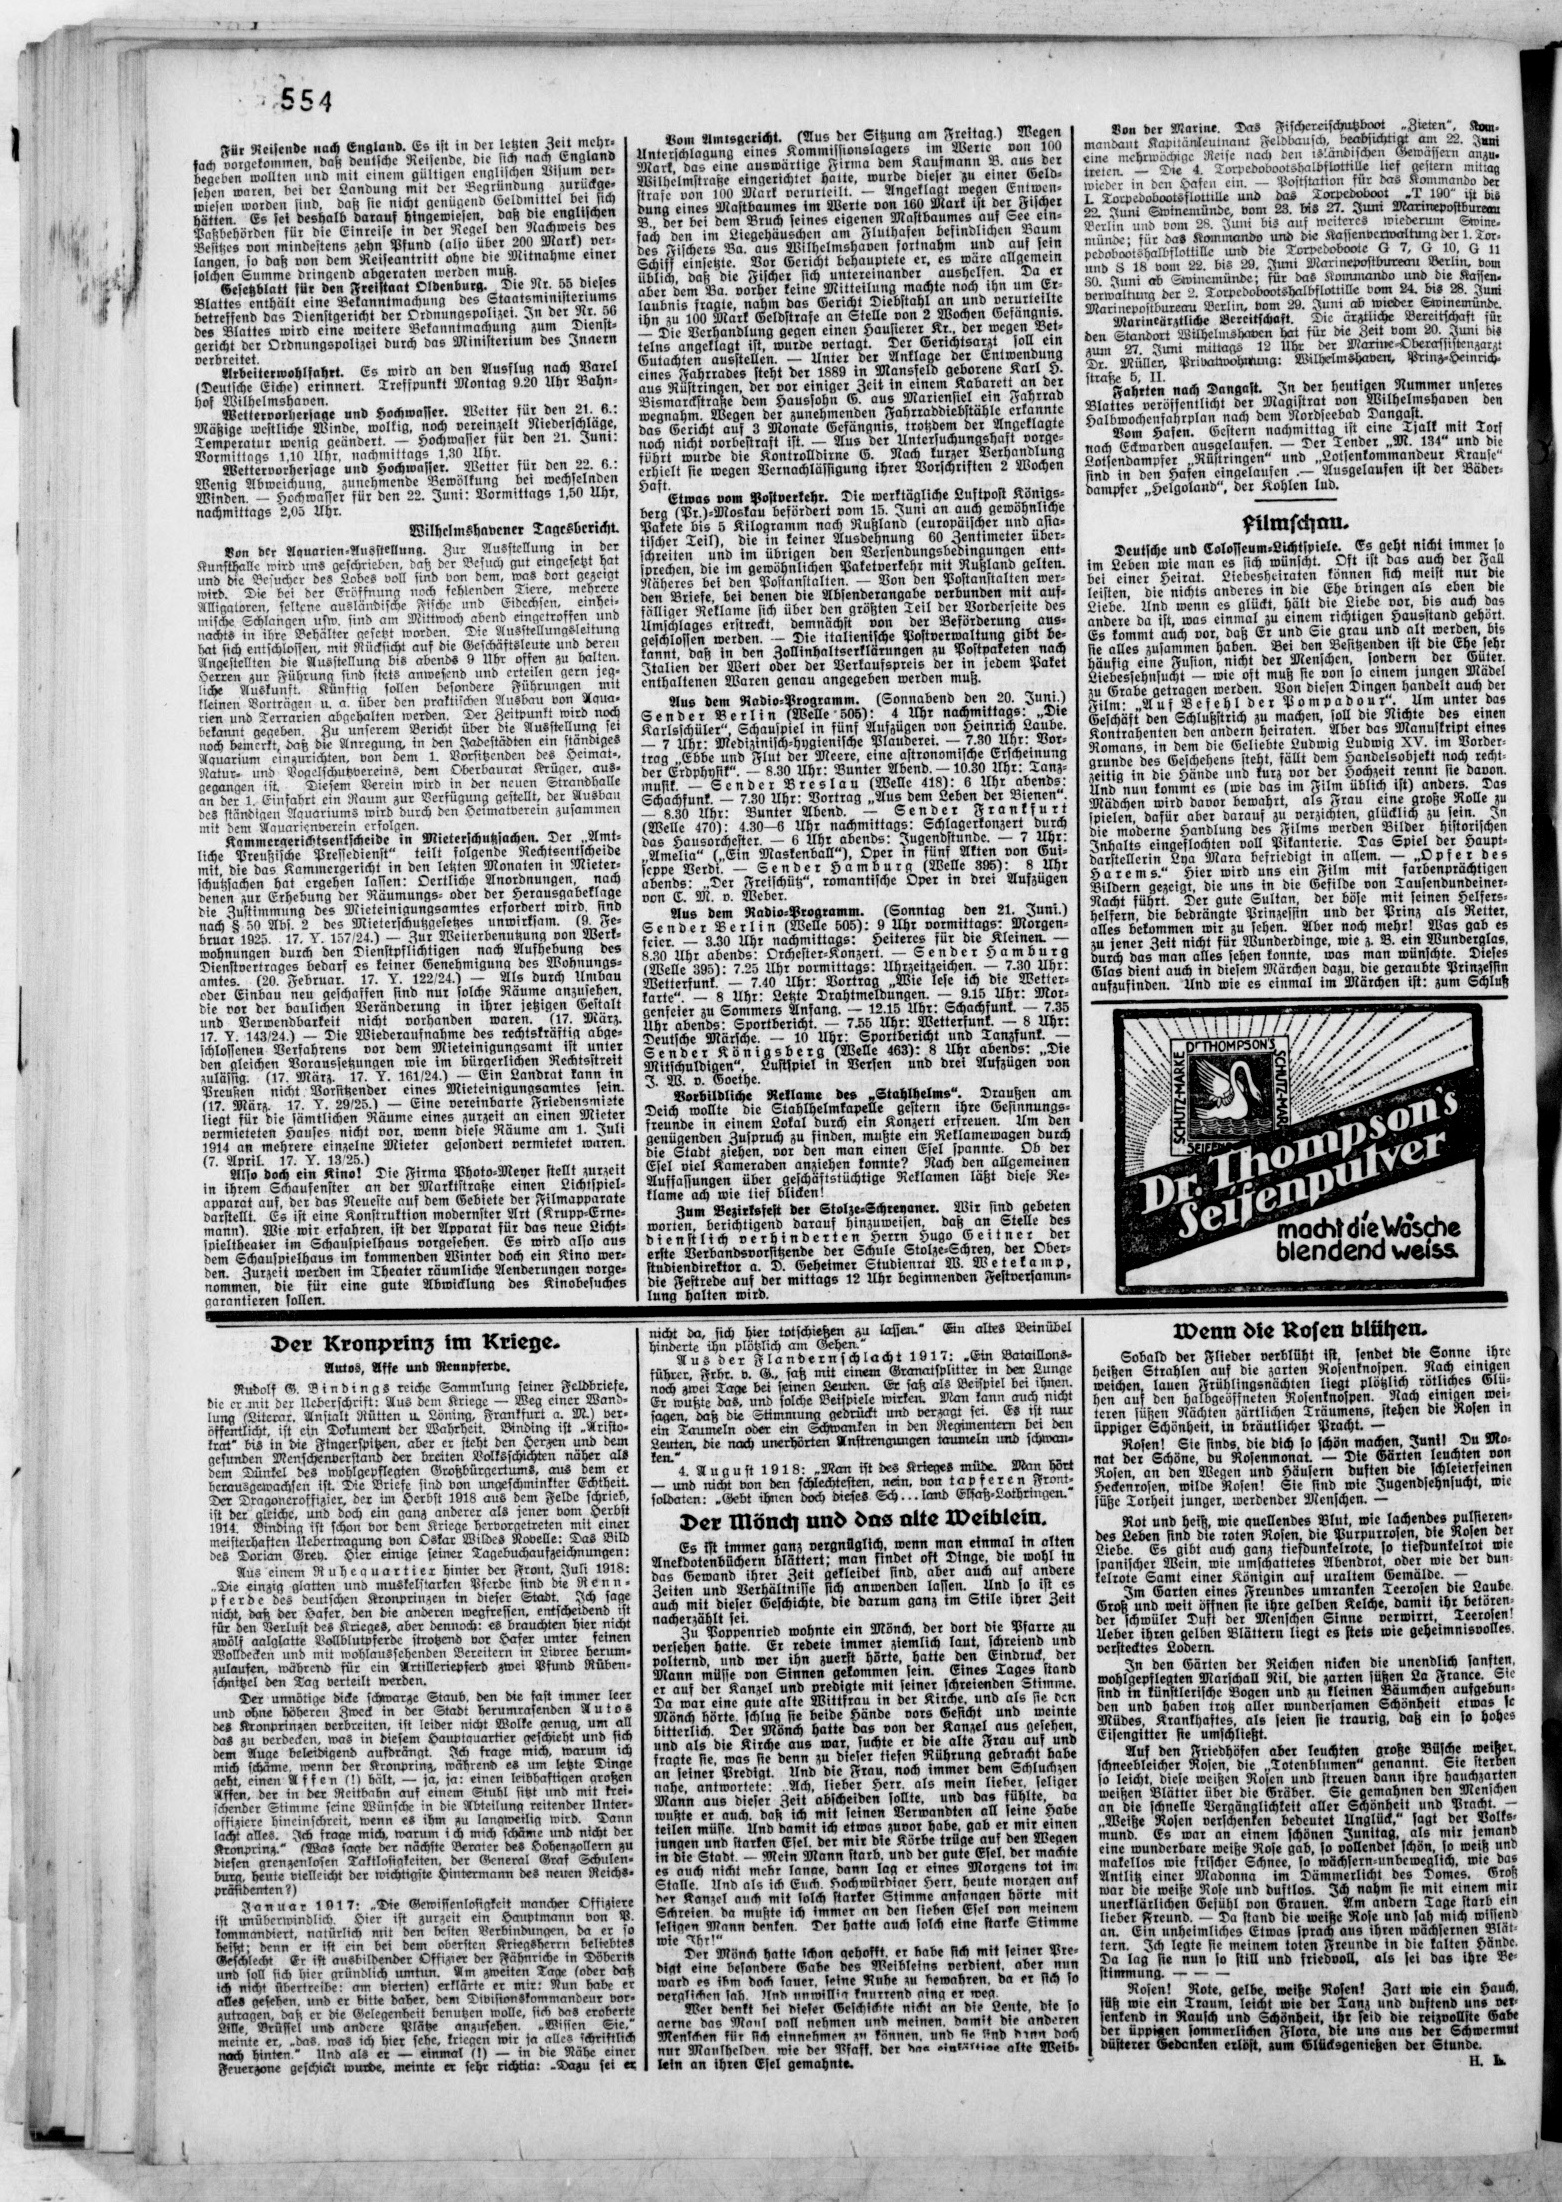 554
Für Reisende nach England. Es ist in der letzten Zeit mehr-
fach vorgekommen, daß deutsche Reisende, die sich nach England
begeben wollten und mit einem gültigen englischen Visum ver-
sehen waren, bei der Landung mit der Begründung zurückge-
wiesen worden sind, daß sie nicht genügend Geldmittel bei sich
hätten. Es sei deshalb darauf hingewiesen, daß die englischen
Paßbehörden für die Einreise in der Regel den Nachweis des
Besitzes von mindestens zehn Pfund (also über 200 Mark) ver-
langen, so daß von dem Reiseantritt ohne die Mitnahme einer
solchen Summe dringend abgeraten werden muß.
Gesetzblatt für den Freistaat Oldenburg. Die Nr. 55 dieses
Blattes enthält eine Bekanntmachung des Staatsministeriums
betreffend das Dienstgericht der Ordnungspolizei. In der Nr. 56
des Blattes wird eine weitere Bekanntmachung zum Dienst-
gericht der Ordnungspolizei durch das Ministerium des Innern
verbreitet.
Arbeiterwohlfahrt. Es wird an den Ausflug nach Varel
(Deutsche Eiche) erinnert. Treffpunkt Montag 9.20 Uhr Bahn-
hof Wilhelmshaven.
Wettervorhersage und Hochwasser. Wetter für den 21. 6.:
Mäßige westliche Winde, wolkig, noch vereinzelt Niederschläge,
Temperatur wenig geändert. — Hochwasser für den 21. Juni:
Vormittags 1,10 Uhr, nachmittags 1,30 Uhr.
Wettervorhersage und Hochwasser. Wetter für den 22. 6.:
Wenig Abweichung, zunehmende Bewölkung bei wechselnden
Winden. — Hochwasser für den 22. Juni: Vormittags 1,50 Uhr,
nachmittags 2,05 Uhr.
Wilhelmshavener Tagesbericht.
Von der Aquarien-Ausstellung. Zur Ausstellung in der
Kunsthalle wird uns geschrieben, daß der Besuch gut eingesetzt hat
und die Besucher des Lobes voll sind von dem, was dort gezeigt
wird. Die bei der Eröffnung noch fehlenden Tiere, mehrere
Alligatoren, seltene ausländische Fische und Eidechsen, einhei-
mische Schlangen usw. sind am Mittwoch abend eingetroffen und
nachts in ihre Behälter gesetzt worden. Die Ausstellungsleitung
hat sich entschlossen, mit Rücksicht auf die Geschäftsleute und deren
Angestellten die Ausstellung bis abends 9 Uhr offen zu halten.
Herren zur Führung sind stets anwesend und erteilen gern jeg-
liche Auskunft. Künftig sollen besondere Führungen mit
kleinen Vorträgen u. a. über den praktischen Ausbau von Aqua-
rien und Terrarien abgehalten werden. Der Zeitpunkt wird noch
bekannt gegeben. Zu unserem Bericht über die Ausstellung sei
noch bemerkt, daß die Anregung, in den Jadestädten ein ständiges
Aquarium einzurichten, von dem 1. Vorsitzenden des Heimat-,
Natur- und Vogelschutzvereins, dem Oberbaurat Krüger, aus-
gegangen ist. Diesem Verein wird in der neuen Strandhalle
an der 1. Einfahrt ein Raum zur Verfügung gestellt, der Ausbau
des ständigen Aquariums wird durch den Heimatverein zusammen
mit dem Aquarienverein erfolgen.
Kammergerichtsentscheide in Mieterschutzsachen. Der „Amt-
liche Preußische Pressedienst“ teilt folgende Rechtsentscheide
mit, die das Kammergericht in den letzten Monaten in Mieter-
schutzsachen hat ergehen lassen: Oertliche Anordnungen, nach
denen zur Erhebung der Räumungs- oder der Herausgabeklage
die Zustimmung des Mieteinigungsamtes erfordert wird, sind
nach § 50 Abs. 2 des Mieterschutzgesetzes unwirksam. (9. Fe-
bruar 1925. 17. Y. 157/24.) — Zur Weiterbenutzung von Werk-
wohnungen durch den Dienstpflichtigen nach Aufhebung des
Dienstvertrages bedarf es keiner Genehmigung des Wohnungs-
amtes. (20. Februar. 17. Y. 122/24.) — Als durch Umbau
oder Einbau neu geschaffen sind nur solche Räume anzusehen,
die vor der baulichen Veränderung in ihrer jetzigen Gestalt
und Verwendbarkeit nicht vorhanden waren. (17. März.
17. Y. 143/24.) — Die Wiederaufnahme des rechtskräftig abge-
schlossenen Verfahrens vor dem Mieteinigungsamt ist unter
den gleichen Voraussetzungen wie im bürgerlichen Rechtsstreit
zulässig. (17. März. 17. Y. 161/24.) — Ein Landrat kann in
Preußen nicht Vorsitzender eines Mieteinigungsamtes sein.
(17. März. 17. Y. 29/25.) — Eine vereinbarte Friedensmiete
liegt für die sämtlichen Räume eines zurzeit an einen Mieter
vermieteten Hauses nicht vor, wenn diese Räume am 1. Juli
1914 an mehrere einzelne Mieter gesondert vermietet waren.
(7. April. 17. Y. 13/25.)
Also doch ein Kino! Die Firma Photo-Meyer stellt zurzeit
in ihrem Schaufenster an der Marktstraße einen Lichtspiel-
apparat auf, der das Neueste auf dem Gebiete der Filmapparate
darstellt. Es ist eine Konstruktion modernster Art (Krupp-Erne-
mann). Wie wir erfahren, ist der Apparat für das neue Licht-
spieltheater im Schauspielhaus vorgesehen. Es wird also aus
dem Schauspielhaus im kommenden Winter doch ein Kino wer-
den. Zurzeit werden im Theater räumliche Aenderungen vorge-
nommen, die für eine gute Abwicklung des Kinobesuches
garantieren sollen.
Vom Amtsgericht. (Aus der Sitzung am Freitag.) Wegen
Unterschlagung eines Kommissionslagers im Werte von 100
Mark, das eine auswärtige Firma dem Kaufmann B. aus der
Wilhelmstraße eingerichtet hatte, wurde dieser zu einer Geld-
strafe von 100 Mark verurteilt. — Angeklagt wegen Entwen-
dung eines Mastbaumes im Werte von 160 Mark ist der Fischer
B., der bei dem Bruch seines eigenen Mastbaumes auf See ein-
fach den im Liegehäuschen am Fluthafen befindlichen Baum
des Fischers Ba. aus Wilhelmshaven fortnahm und auf sein
Schiff einsetzte. Vor Gericht behauptete er, es wäre allgemein
üblich, daß die Fischer sich untereinander aushelfen. Da er
aber dem Ba. vorher keine Mitteilung machte noch ihn um Er-
laubnis fragte, nahm das Gericht Diebstahl an und verurteilte
ihn zu 100 Mark Geldstrafe an Stelle von 2 Wochen Gefängnis.
— Die Verhandlung gegen einen Hausierer Kr., der wegen Bet-
telns angeklagt ist, wurde vertagt. Der Gerichtsarzt soll ein
Gutachten ausstellen. — Unter der Anklage der Entwendung
eines Fahrrades steht der 1889 in Mansfeld geborene Karl H.
aus Rüstringen, der vor einiger Zeit in einem Kabarett an der
Bismarckstraße dem Haussohn G. aus Mariensiel ein Fahrrad
wegnahm. Wegen der zunehmenden Fahrraddiebstähle erkannte
das Gericht auf 3 Monate Gefängnis, trotzdem der Angeklagte
noch nicht vorbestraft ist. — Aus der Untersuchungshaft vorge-
führt wurde die Kontrolldirne G. Nach kurzer Verhandlung
erhielt sie wegen Vernachlässigung ihrer Vorschriften 2 Wochen
Haft.
Etwas vom Postverkehr. Die werktägliche Luftpost Königs-
berg (Pr.)-Moskau befördert vom 15. Juni an auch gewöhnliche
Pakete bis 5 Kilogramm nach Rußland (europäischer und asia-
tischer Teil), die in keiner Ausdehnung 60 Zentimeter über-
schreiten und im übrigen den Versendungsbedingungen ent-
sprechen, die im gewöhnlichen Paketverkehr mit Rußland gelten.
Näheres bei den Postanstalten. — Von den Postanstalten wer-
den Briefe, bei denen die Absenderangabe verbunden mit auf-
fälliger Reklame sich über den größten Teil der Vorderseite des
Umschlages erstreckt, demnächst von der Beförderung aus-
geschlossen werden. — Die italienische Postverwaltung gibt be-
kannt, daß in den Zollinhaltserklärungen zu Postpaketen nach
Italien der Wert oder der Verkaufspreis der in jedem Paket
enthaltenen Waren genau angegeben werden muß.
Aus dem Radio-Programm. (Sonnabend den 20. Juni.)
Sender Berlin (Welle 505): 4 Uhr nachmittags: „Die
Karlsschüler“, Schauspiel in fünf Aufzügen von Heinrich Laube.
— 7 Uhr: Medizinisch-hygienische Plauderei. — 7.30 Uhr: Vor-
trag „Ebbe und Flut der Meere, eine astronomische Erscheinung
der Erdphysik“. — 8.30 Uhr: Bunter Abend. — 10.30 Uhr: Tanz-
musik. — Sender Breslau (Welle 418): 6 Uhr abends:
Schachfunk. — 7.30 Uhr: Vortrag „Aus dem Leben der Bienen“.
— 8.30 Uhr: Bunter Abend. — Sender Frankfurt
(Welle 470): 4.30—6 Uhr nachmittags: Schlagerkonzert durch
das Hausorchester. — 6 Uhr abends: Jugendstunde. — 7 Uhr:
„Amelia“ („Ein Maskenball“), Oper in fünf Akten von Gui-
seppe Verdi. — Sender Hamburg (Welle 395): 8 Uhr
abends: „Der Freischütz“, romantische Oper in drei Aufzügen
von C. M. v. Weber.
Aus dem Radio-Programm. (Sonntag den 21. Juni.)
Sender Berlin (Welle 505): 9 Uhr vormittags: Morgen-
feier. — 3.30 Uhr nachmittags: Heiteres für die Kleinen. —
8.30 Uhr abends: Orchester-Konzert. — Sender Hamburg
(Welle 395): 7.25 Uhr vormittags: Uhrzeitzeichen. — 7.30 Uhr:
Wetterfunk. — 7.40 Uhr: Vortrag „Wie lese ich die Wetter-
karte“. — 8 Uhr: Letzte Drahtmeldungen. — 9.15 Uhr: Mor-
genfeier zu Sommers Anfang. — 12.15 Uhr: Schachfunk. — 7.35
Uhr abends: Sportbericht. — 7.55 Uhr: Wetterfunk. — 8 Uhr:
Deutsche Märsche. — 10 Uhr: Sportbericht und Tanzfunk. —
Sender Königsberg (Welle 463): 8 Uhr abends: „Die
Mitschuldigen“, Lustspiel in Versen und drei Aufzügen von
J. W. v. Goethe.
Vorbildliche Reklame des „Stahlhelms“. Draußen am
Deich wollte die Stahlhelmkapelle gestern ihre Gesinnungs-
freunde in einem Lokal durch ein Konzert erfreuen. Um den
genügenden Zuspruch zu finden, mußte ein Reklamewagen durch
die Stadt ziehen, vor den man einen Esel spannte. Ob der
Esel viel Kameraden anziehen konnte? Nach den allgemeinen
Auffassungen über geschäftstüchtige Reklamen läßt diese Re-
klame ach wie tief blicken!
Zum Bezirksfest der Stolze-Schreyaner. Wir sind gebeten
worten, berichtigend darauf hinzuweisen, daß an Stelle des
dienstlich verhinderten Herrn Hugo Geitner der
erste Verbandsvorsitzende der Schule Stolze-Schrey, der Ober-
studiendirektor a. D. Geheimer Studienrat W. Wetekamp,
die Festrede auf der mittags 12 Uhr beginnenden Festversamm-
lung halten wird.
Von der Marine. Das Fischereischutzboot „Zieten“, Kom-
mandant Kapitänleutnant Feldbausch, beabsichtigt am 22. Juni
eine mehrwöchige Reise nach den isländischen Gewässern anzu-
treten. — Die 4. Torpedobootshalbflottille lief gestern mittag
wieder in den Hafen ein. — Poststation für das Kommando der
1. Torpedobootsflottille und das Torpedoboot „T 190“ ist bis
22. Juni Swinemünde, vom 23. bis 27. Juni Marinepostbureau
Berlin und vom 28. Juni bis auf weiteres wiederum Swine-
münde; für das Kommando und die Kassenverwaltung der 1. Tor-
pedobootshalbflottille und die Torpedoboote G 7, G 10, G 11
und S 18 vom 22. bis 29. Juni Marinepostbureau Berlin, vom
30. Juni ab Swinemünde; für das Kommando und die Kassen-
verwaltung der 2. Torpedobootshalbflottille vom 24. bis 28. Juni
Marinepostbureau Berlin, vom 29. Juni ab wieder Swinemünde.
Marineärztliche Bereitschaft. Die ärztliche Bereitschaft für
den Standort Wilhelmshaven hat für die Zeit vom 20. Juni bis
zum 27. Juni mittags 12 Uhr der Marine-Oberassistenzarzt
Dr. Müller, Privatwohnung: Wilhelmshaven, Prinz-Heinrich-
straße 5, II.
Fahrten nach Dangast. In der heutigen Nummer unseres
Blattes veröffentlicht der Magistrat von Wilhelmshaven den
Halbwochenfahrplan nach dem Nordseebad Dangast.
Vom Hafen. Gestern nachmittag ist eine Tjalk mit Torf
nach Eckwarden ausgelaufen. — Der Tender „M. 134“ und die
Lotsendampfer „Rüstringen“ und „Lotsenkommandeur Krause“
sind in den Hafen eingelaufen .— Ausgelaufen ist der Bäder-
dampfer „Helgoland“, der Kohlen lud.
Filmschau.
Deutsche und Colosseum-Lichtspiele. Es geht nicht immer so
im Leben wie man es sich wünscht. Oft ist das auch der Fall
bei einer Heirat. Liebesheiraten können sich meist nur die
leisten, die nichts anderes in die Ehe bringen als eben die
Liebe. Und wenn es glückt, hält die Liebe vor, bis auch das
andere da ist, was einmal zu einem richtigen Hausstand gehört.
Es kommt auch vor, daß Er und Sie grau und alt werden, bis
sie alles zusammen haben. Bei den Besitzenden ist die Ehe sehr
häufig eine Fusion, nicht der Menschen, sondern der Güter.
Liebessehnsucht — wie oft muß sie von so einem jungen Mädel
zu Grabe getragen werden. Von diesen Dingen handelt auch der
Film: „Auf Befehl der Pompadour“. Um unter das
Geschäft den Schlußstrich zu machen, soll die Nichte des einen
Kontrahenten den andern heiraten. Aber das Manuskript eines
Romans, in dem die Geliebte Ludwig Ludwig XV. im Vorder-
grunde des Geschehens steht, fällt dem Handelsobjekt noch recht-
zeitig in die Hände und kurz vor der Hochzeit rennt sie davon.
Und nun kommt es (wie das im Film üblich ist) anders. Das
Mädchen wird davor bewahrt, als Frau eine große Rolle zu
spielen, dafür aber darauf zu verzichten, glücklich zu sein. In
die moderne Handlung des Films werden Bilder historischen
Inhalts eingeflochten voll Pikanterie. Das Spiel der Haupt-
darstellerin Lya Mara befriedigt in allem. — „Opfer des
Harems.“ Hier wird uns ein Film mit farbenprächtigen
Bildern gezeigt, die uns in die Gefilde von Tausendundeiner-
Nacht führt. Der gute Sultan, der böse mit seinen Helfers-
helfern, die bedrängte Prinzessin und der Prinz als Retter,
alles bekommen wir zu sehen. Aber noch mehr! Was gab es
zu jener Zeit nicht für Wunderdinge, wie z. B. ein Wunderglas,
durch das man alles sehen konnte, was man wünschte. Dieses
Glas dient auch in diesem Märchen dazu, die geraubte Prinzessin
aufzufinden. Und wie es einmal im Märchen ist: zum Schluß
DR THOMPSON'S
SCHUTZ-MARKE
SCHUTZ-MARKE
Dr. Thompson's
Seifenpulver
macht die Wäsche
blendend weiss
Der Kronprinz im Kriege.
Autos, Affe und Rennpferde.
Rudolf G. Bindings reiche Sammlung seiner Feldbriefe,
die er mit der Ueberschrift: Aus dem Kriege — Weg einer Wand-
lung (Literar. Anstalt Rütten u. Löning, Frankfurt a. M.) ver-
öffentlicht, ist ein Dokument der Wahrheit. Binding ist „Aristo-
krat“ bis in die Fingerspitzen, aber er steht den Herzen und dem
gesunden Menschenverstand der breiten Volksschichten näher als
dem Dünkel des wohlgepflegten Großbürgertums, aus dem er
herausgewachsen ist. Die Briefe sind von ungeschminkter Echtheit.
Der Dragoneroffizier, der im Herbst 1918 aus dem Felde schrieb,
ist der gleiche, und doch ein ganz anderer als jener vom Herbst
1914. Binding ist schon vor dem Kriege hervorgetreten mit einer
meisterhaften Uebertragung von Oskar Wildes Novelle: Das Bild
des Dorian Grey. Hier einige seiner Tagebuchaufzeichnungen:
Aus einem Ruhequartier hinter der Front, Juli 1918:
„Die einzig glatten und muskelstarken Pferde sind die Renn-
pferde des deutschen Kronprinzen in dieser Stadt. Ich sage
nicht, daß der Hafer, den die anderen wegfressen, entscheidend ist
für den Verlust des Krieges, aber dennoch: es brauchten hier nicht
zwölf aalglatte Vollblutpferde strotzend vor Hafer unter feinen
Wolldecken und mit wohlaussehenden Bereitern in Livree herum-
zulaufen, während für ein Artilleriepferd zwei Pfund Rüben-
schnitzel den Tag verteilt werden.
Der unnötige dicke schwarze Staub, den die fast immer leer
und ohne höheren Zweck in der Stadt herumrasenden Autos
des Kronprinzen verbreiten, ist leider nicht Wolke genug, um all
das zu verdecken, was in diesem Hauptquartier geschieht und sich
dem Auge beleidigend aufdrängt. Ich frage mich, warum ich
mich schäme, wenn der Kronprinz, während es um letzte Dinge
geht, einen Affen (!) hält, — ja, ja: einen leibhaftigen großen
Affen, der in der Reitbahn auf einem Stuhl sitzt und mit krei-
schender Stimme seine Wünsche in die Abteilung reitender Unter-
offiziere hineinschreit, wenn es ihm zu langweilig wird. Dann
lacht alles. Ich frage mich, warum ich mich schäme und nicht der
Kronprinz.“ (Was sagte der nächste Berater des Hohenzollern zu
diesen grenzenlosen Taktlosigkeiten, der General Graf Schulen-
burg, heute vielleicht der wichtigste Hintermann des neuen Reichs-
präsidenten?)
Januar 1917: „Die Gewissenlosigkeit mancher Offiziere
ist unüberwindlich. Hier ist zurzeit ein Hauptmann von P.
kommandiert, natürlich mit den besten Verbindungen, da er ja
heißt; denn er ist ein bei dem obersten Kriegsherrn beliebtes
Geschlecht. Er ist ausbildender Offizier der Fähnriche in Döberitz
und soll sich hier gründlich umtun. Am zweiten Tage (oder daß
ich nicht übertreibe: am vierten) erklärte er mir: Nun habe er
alles gesehen, und er bitte daher, dem Divisionskommandeur vor-
zutragen, daß er die Gelegenheit benutzen wolle, sich das eroberte
Lille, Brüssel und andere Plätze anzusehen. „Wissen Sie,“
meinte er, „das, was ich hier sehe, kriegen wir ja alles schriftlich
nach hinten.“ Und als er — einmal (!) — in die Nähe einer
Feuerzone geschickt wurde, meinte er sehr richtig: „Dazu sei er
nicht da, sich hier totschießen zu lassen.“ Ein altes Beinübel
hinderte ihn plötzlich am Gehen.“
Aus der Flandernschlacht 1917: „Ein Bataillons-
führer, Frhr. v. G., saß mit einem Granatsplitter in der Lunge
noch zwei Tage bei seinen Leuten. Er saß als Beispiel bei ihnen.
Er wußte das, und solche Beispiele wirken. Man kann auch nicht
sagen, daß die Stimmung gedrückt und verzagt sei. Es ist nur
ein Taumeln oder ein Schwanken in den Regimentern bei den
Leuten, die nach unerhörten Anstrengungen taumeln und schwan-
ken.“
4. August 1918: „Man ist des Krieges müde. Man hört
— und nicht von den schlechtesten, nein, von tapferen Front-
soldaten: „Gebt ihnen doch dieses Sch...land Elsaß-Lothringen.“
Der Mönch und das alte Weiblein.
Es ist immer ganz vergnüglich, wenn man einmal in alten
Anekdotenbüchern blättert; man findet oft Dinge, die wohl in
das Gewand ihrer Zeit gekleidet sind, aber auch auf andere
Zeiten und Verhältnisse sich anwenden lassen. Und so ist es
auch mit dieser Geschichte, die darum ganz im Stile ihrer Zeit
nacherzählt sei.
Zu Poppenried wohnte ein Mönch, der dort die Pfarre zu
versehen hatte. Er redete immer ziemlich laut, schreiend und
polternd, und wer ihn zuerst hörte, hatte den Eindruck, der
Mann müsse von Sinnen gekommen sein. Eines Tages stand
er auf der Kanzel und predigte mit seiner schreienden Stimme.
Da war eine gute alte Wittfrau in der Kirche, und als sie den
Mönch hörte, schlug sie beide Hände vors Gesicht und weinte
bitterlich. Der Mönch hatte das von der Kanzel aus gesehen,
und als die Kirche aus war, suchte er die alte Frau auf und
fragte sie, was sie denn zu dieser tiefen Rührung gebracht habe
an seiner Predigt. Und die Frau, noch immer dem Schluchzen
nahe, antwortete: „Ach, lieber Herr, als mein lieber, seliger
Mann aus dieser Zeit abscheiden sollte, und das fühlte, da
wußte er auch, daß ich mit seinen Verwandten all seine Habe
teilen müsse. Und damit ich etwas zuvor habe, gab er mir einen
jungen und starken Esel, der mir die Körbe trüge auf den Wegen
in die Stadt. — Mein Mann starb, und der gute Esel, der machte
es auch nicht mehr lange, dann lag er eines Morgens tot im
Stalle. Und als ich Euch, Hochwürdiger Herr, heute morgen auf
der Kanzel auch mit solch starker Stimme anfangen hörte mit
Schreien, da mußte ich immer an den lieben Esel von meinem
seligen Mann denken. Der hatte auch solch eine starke Stimme
wie Ihr!“
Der Mönch hatte schon gehofft, er habe sich mit seiner Pre-
digt eine besondere Gabe des Weibleins verdient, aber nun
ward es ihm doch sauer, seine Ruhe zu bewahren, da er sich so
verglichen sah. Und unwillig knurrend ging er weg.
Wer denkt bei dieser Geschichte nicht an die Leute, die so
gerne das Maul voll nehmen und meinen, damit die anderen
Menschen für sich einnehmen zu können, und sie sind dann doch
nur Maulhelden, wie der Pfaff, der das einfältige alte Weib-
lein an ihren Esel gemahnte.
Wenn die Rosen blühen.
Sobald der Flieder verblüht ist, sendet die Sonne ihre
heißen Strahlen auf die zarten Rosenknospen. Nach einigen
weichen, lauen Frühlingsnächten liegt plötzlich rötliches Glü-
hen auf den halbgeöffneten Rosenknospen. Nach einigen wei-
teren süßen Nächten zärtlichen Träumens, stehen die Rosen in
üppiger Schönheit, in bräutlicher Pracht. —
Rosen! Sie sinds, die dich so schön machen, Juni! Du Mo-
nat der Schöne, du Rosenmonat. — Die Gärten leuchten von
Rosen, an den Wegen und Häusern duften die schleierfeinen
Heckenrosen, wilde Rosen! Sie sind wie Jugendsehnsucht, wie
süße Torheit junger, werdender Menschen. —
Rot und heiß, wie quellendes Blut, wie lachendes pulsieren-
des Leben sind die roten Rosen, die Purpurrosen, die Rosen der
Liebe. Es gibt auch ganz tiefdunkelrote, so tiefdunkelrot wie
spanischer Wein, wie umschattetes Abendrot, oder wie der dun-
kelrote Samt einer Königin auf uraltem Gemälde. —
Im Garten eines Freundes umranken Teerosen die Laube.
Groß und weit öffnen sie ihre gelben Kelche, damit ihr betören-
der schwüler Duft der Menschen Sinne verwirrt, Teerosen!
Ueber ihren gelben Blättern liegt es stets wie geheimnisvolles,
verstecktes Lodern.
In den Gärten der Reichen nicken die unendlich sanften,
wohlgepflegten Marschall Nil, die zarten süßen La France. Sie
sind in künstlerische Bogen und zu kleinen Bäumchen aufgebun-
den und haben trotz aller wundersamen Schönheit etwas so
Müdes, Krankhaftes, als seien sie traurig, daß ein so hohes
Eisengitter sie umschließt.
Auf den Friedhöfen aber leuchten große Büsche weißer,
schneebleicher Rosen, die „Totenblumen“ genannt. Sie sterben
so leicht, diese weißen Rosen und streuen dann ihre hauchzarten
weißen Blätter über die Gräber. Sie gemahnen den Menschen
an die schnelle Vergänglichkeit aller Schönheit und Pracht. —
„Weiße Rosen verschenken bedeutet Unglück,“ sagt der Volks-
mund. Es war an einem schönen Junitag, als mir jemand
eine wunderbare weiße Rose gab, so vollendet schön, so weiß und
makellos wie frischer Schnee, so wächsern-unbeweglich, wie das
Antlitz einer Madonna im Dämmerlicht des Domes. Groß
war die weiße Rose und duftlos. Ich nahm sie mit einem mir
unerklärlichen Gefühl von Grauen. Am andern Tage starb ein
lieber Freund. — Da stand die weiße Rose und sah mich wissend
an. Ein unheimliches Etwas sprach aus ihren wächsernen Blät-
tern. Ich legte sie meinem toten Freunde in die kalten Hände.
Da lag sie nun so still und friedvoll, als sei das ihre Be-
stimmung. — — —
Rosen! Rote, gelbe, weiße Rosen! Zart wie ein Hauch,
süß wie ein Traum, leicht wie der Tanz und duftend uns ver-
senkend in Rausch und Schönheit, ihr seid die reizvollste Gabe
der üppigen sommerlichen Flora, die uns aus der Schwermut
düsterer Gedanken erlöst, zum Glücksgenießen der Stunde.
H. L.